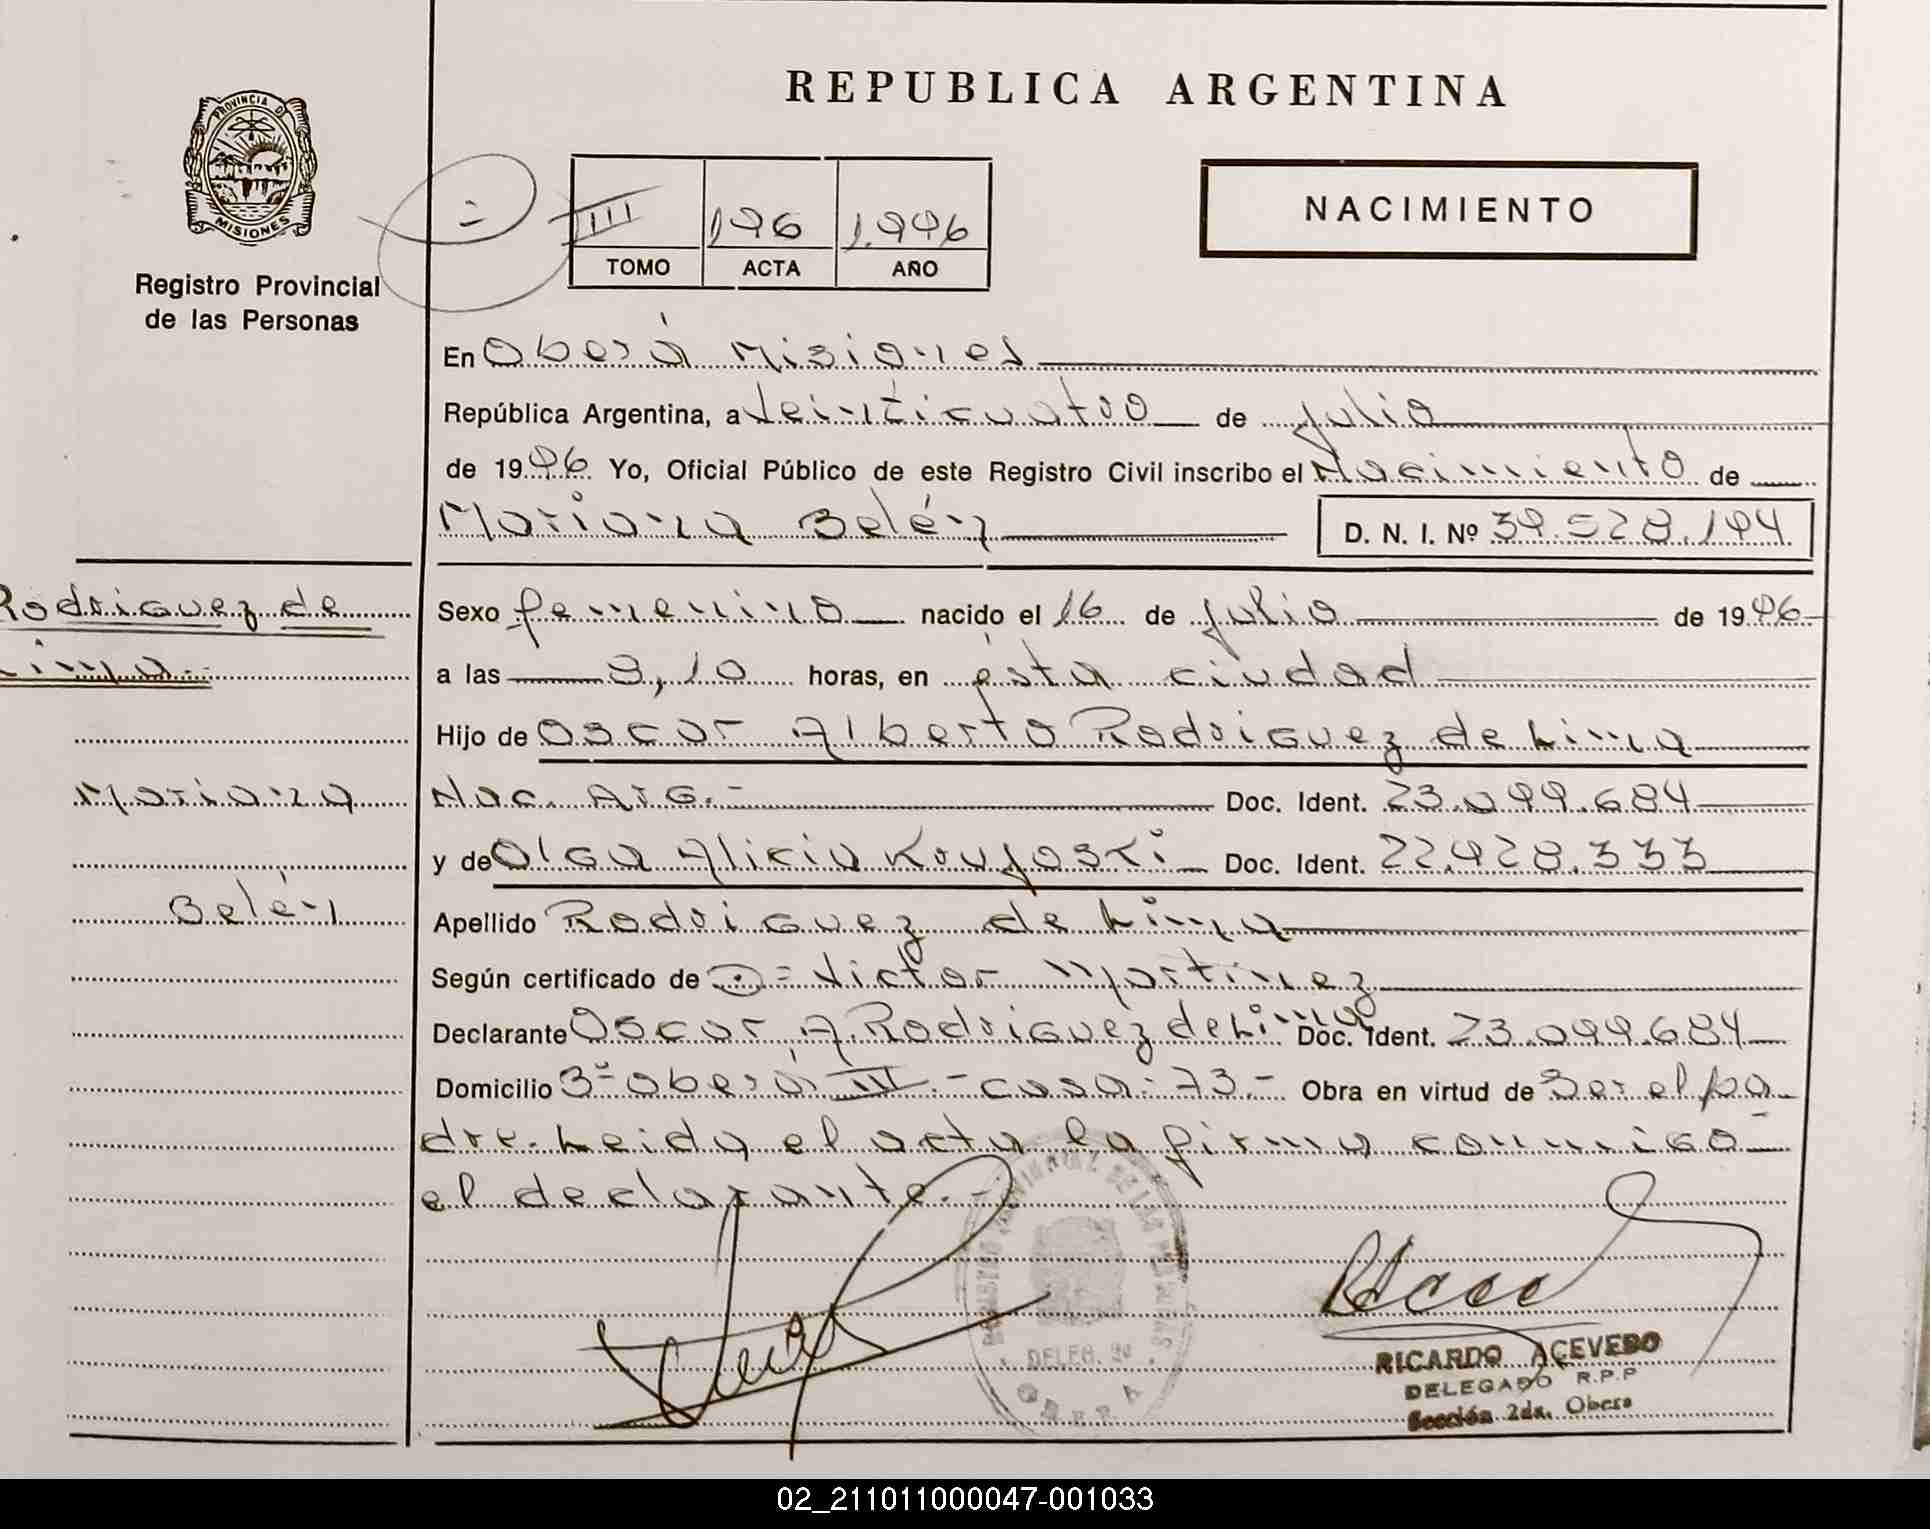 REPUBLICA ARGENTINA
PROVINCIA DE
MISIONES
Registro Provincial
de las Personas
III 196 1.996
TOMO ACTA AÑO
NACIMIENTO
En Oberá Misiones
República Argentina, a Veinticuatro de julio
de 1996 Yo, Oficial Público de este Registro Civil inscribo el Nacimiento de
Mariana Belén D. N. I. Nº 39.528.194
Rodriguez de
Lima
Mariana
Belén
Sexo femenino nacido el 16 de julio de 1996
a las 8,10 horas, en ésta ciudad
Hijo de Oscar Alberto Rodriguez de Lima
Nac. Arg.- Doc. Ident. 23.099.684
y de Olga Alicia Doc. Ident. 22.928.333
Apellido Rodriguez de Lima
Según certificado de Victor Martinez
Declarante Oscar A. Rodriguez de Lima Doc. Ident. 23.099.684
Domicilio Oberá III.- casa: 73.- Obra en virtud de Ser el pa
dre. Leida el acta la firma conmigo
el declarante.-
REGISTRO PROVINCIAL DE LAS PERSONAS
OBERA
RICARDO ACEVEDO
DELEGADO R.P.P
Sección 2da. Obera
02_211011000047-001033